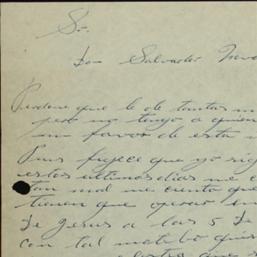 Sr.
Don Salvador
Perdone que le de tantas
pero no tengo a quien
un favor de esta
Pues fijece que yo sig
estos ultimos dias me e
tan mal me cuento que
tienen que operar en
De Jesus a las 5 De
con tal motibo quis